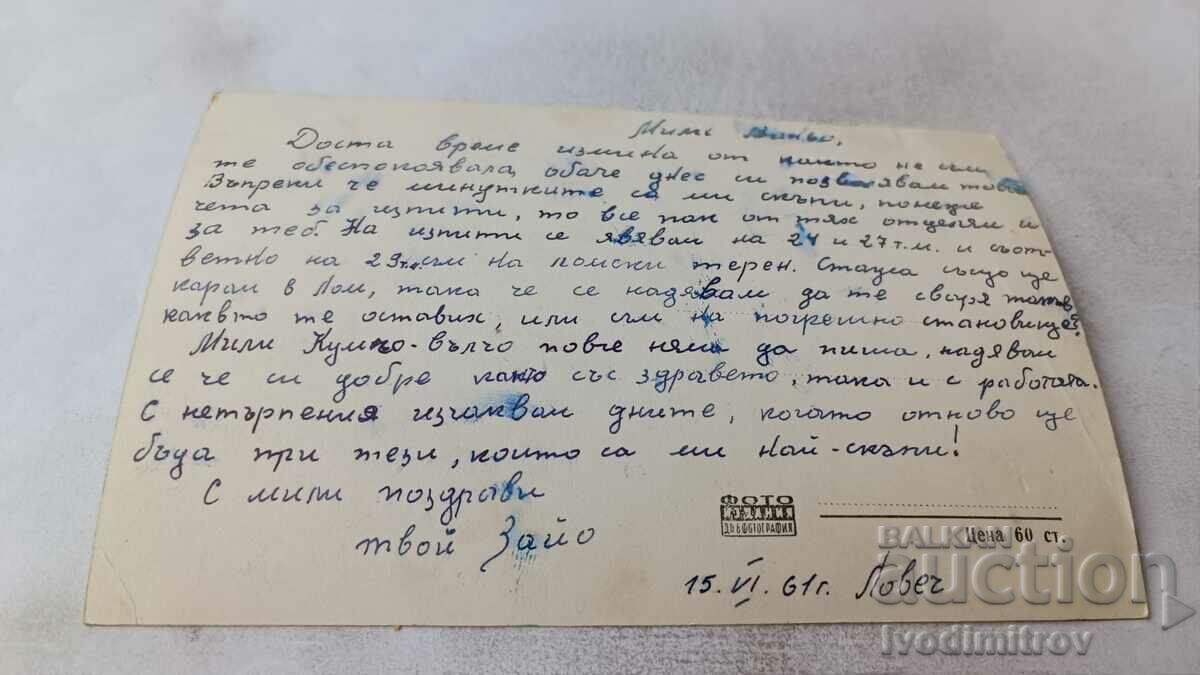 Мили Ваньо,
Доста време измина от както не съм
те обеспокоявала, обаче днес си позволявам това
Въпреки че минутките са ми скъпи, понеже
чета за изпити, то все пак от тях отделям и
за теб. На изпити се явявам на 24 и 27 т.м. и съот-
ветно на 29 т.м. съм на ломски терен. Стажа също ще
карам в Лом, така че се надявам да те сваря такъв
какъвто те оставих, или съм на погрешно становище?
Мили Кумчо-Вълчо повече няма да пиша, надявам
се че си добре както със здравето, така и с работата.
С нетърпения изчаквам дните, когато отново ще
бъда при тези, които са ми най-скъпи!
С мили поздрави
твой Зайо
ФОТО
ДЪФОТОГРАФИЯ
Цена 60 ст.
15.VI.61г. Ловеч
BALKAN
auction
Ivodimitrov